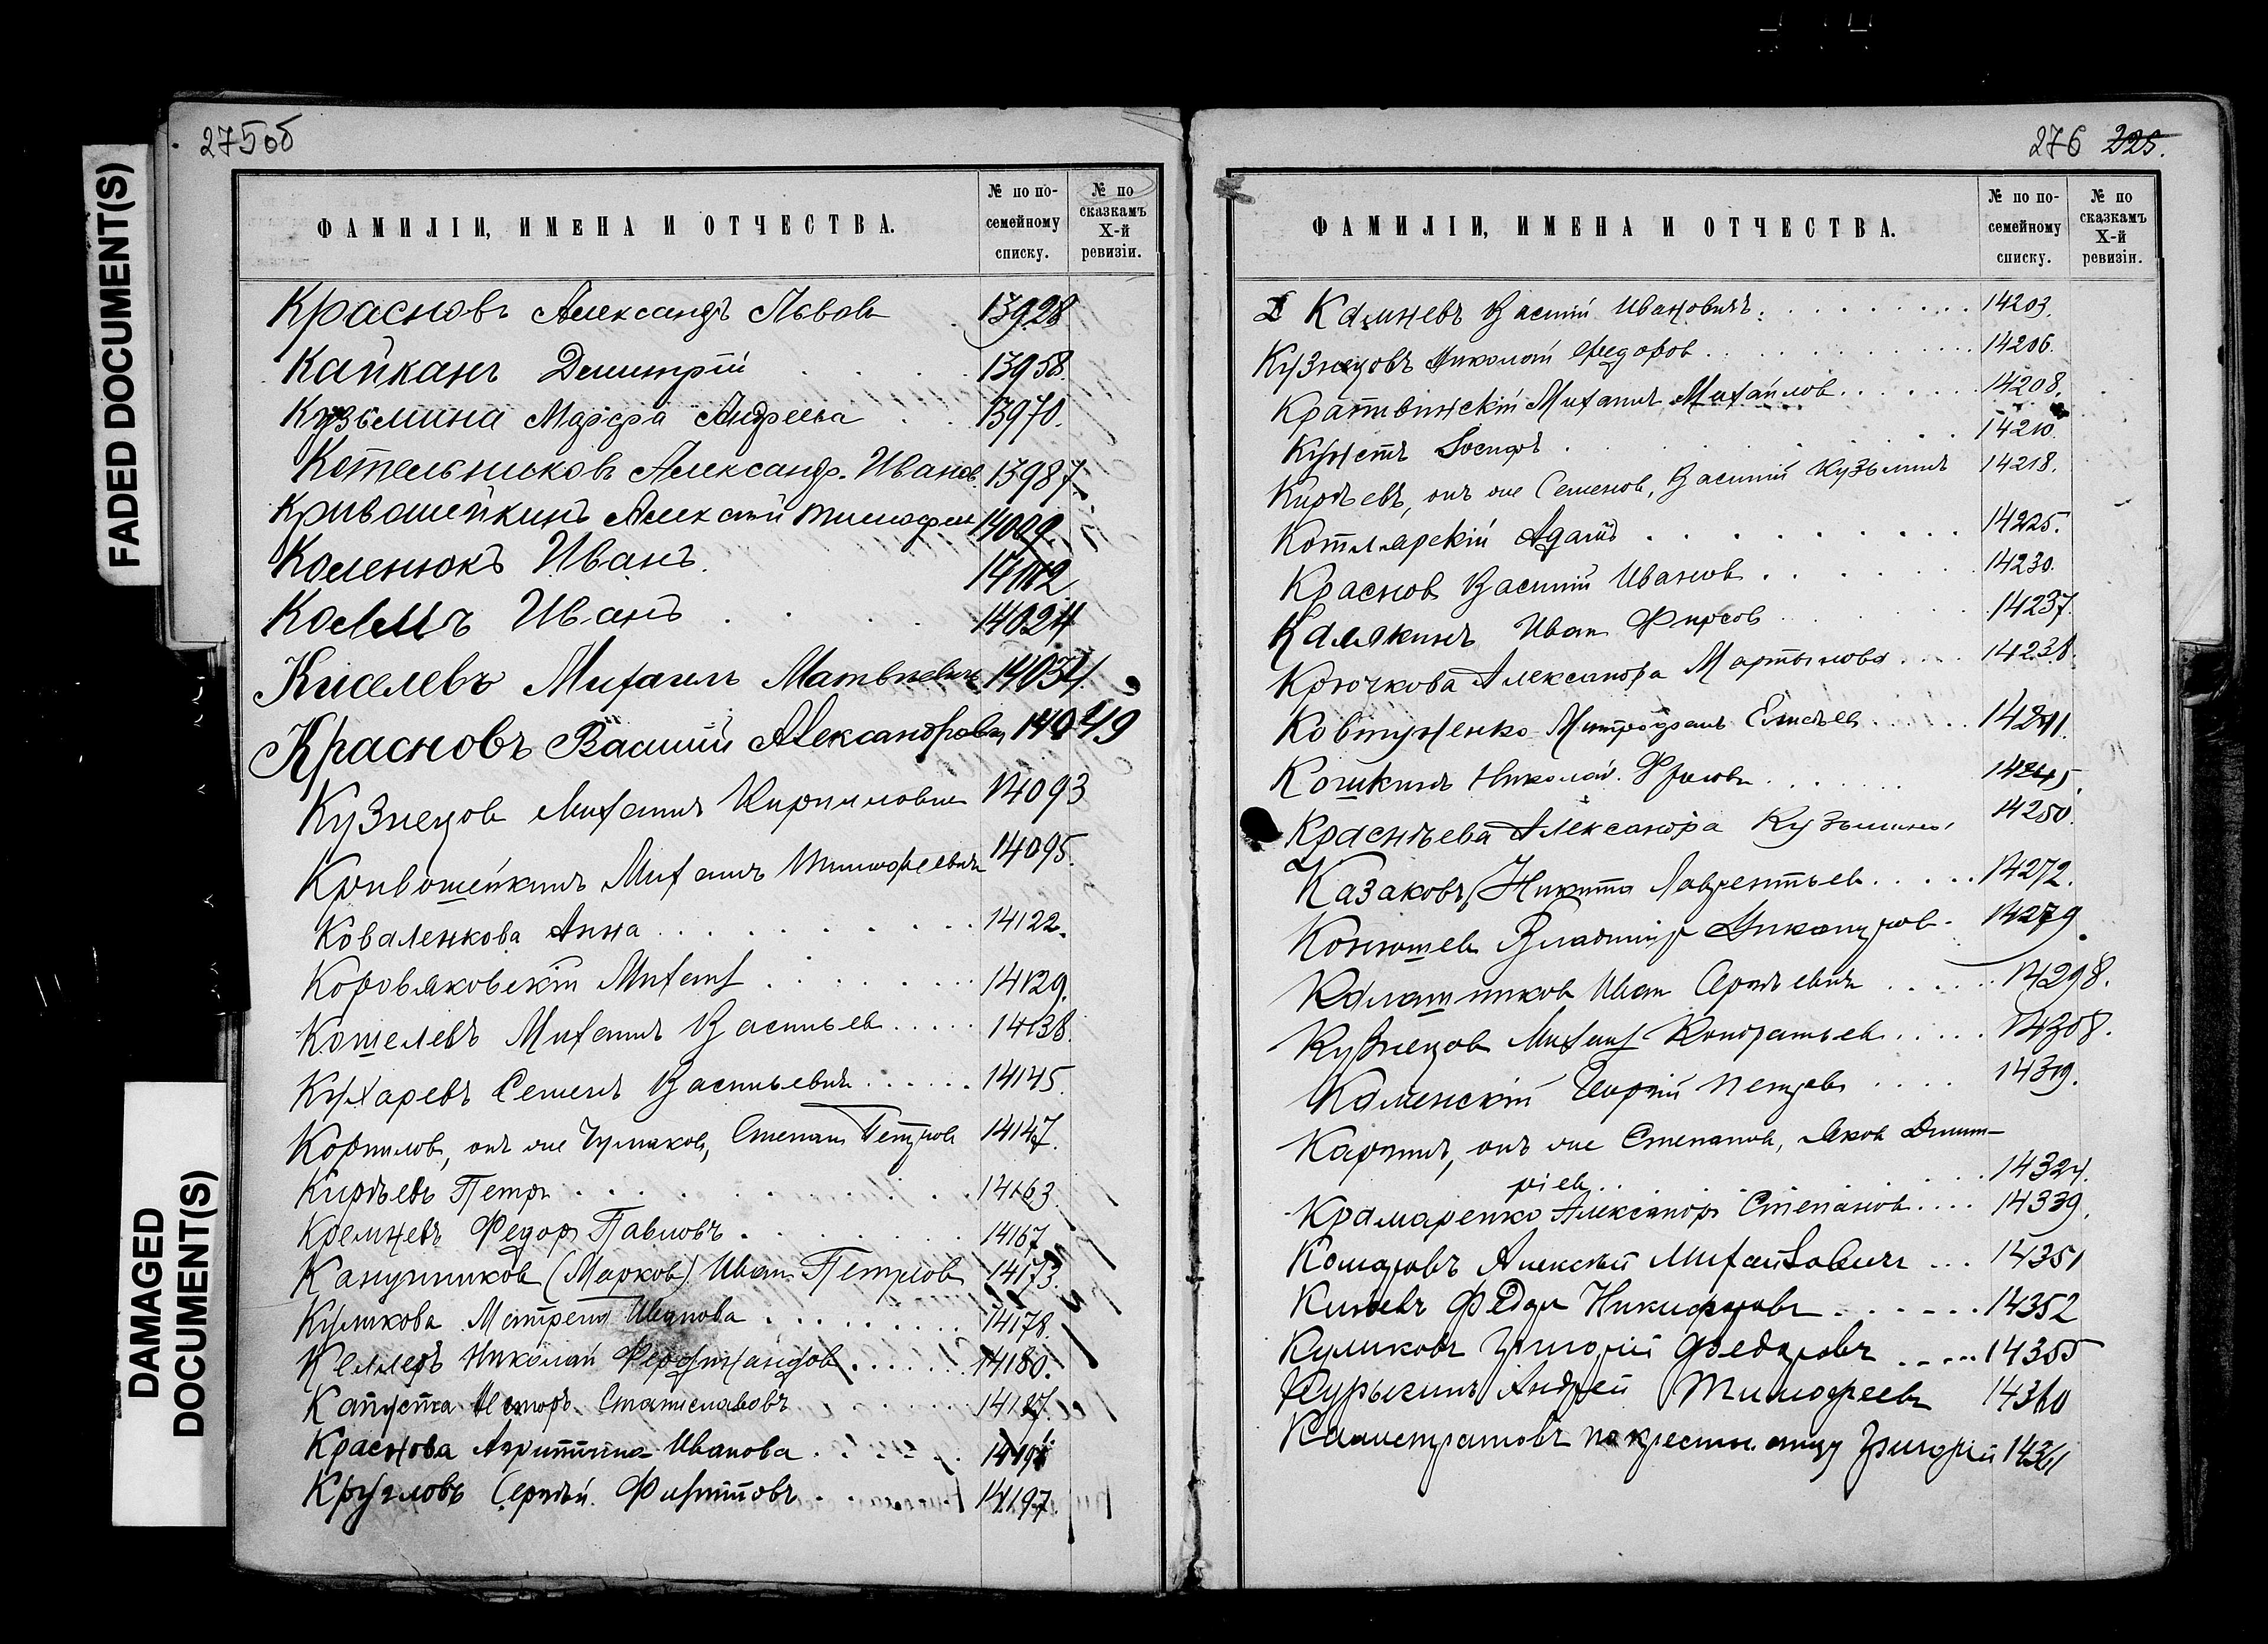 FADED DOCUMENT(S)
DAMAGED
DOCUMENT(S)
275об
ФАМИЛІИ, ИМЕНА И ОТЧЕСТВА.
№ по по-
семейному
списку.
№ по
сказкамъ
X-й
ревизіи.
Красновъ Александръ Львовъ 13928
Кайканъ Димитрій 13958.
Кузьмина Марѳа Андреева 13970.
Котельниковъ Александр. Иванов. 13987.
Кривошейкинъ Алексѣй Тимофеев 14009.
Коленюкъ Иванъ. 14012
Коммъ Иванъ 14024
Киселевъ Михаилъ Матвѣевичъ 14034.
Красновъ Василій Александровъ 14049
Кузнецов Михаилъ Кирилловичъ 14093
Кривошейкинъ Михаилъ Тимофеевичъ 14095.
Коваленкова Анна 14122.
Коровяковскій Михаил 14129.
Кошелевъ Михаилъ Васильев 14138.
Кухаревъ Семенъ Васильевичъ 14145.
Корнилов, онъ же Чумаков, Степанъ Петров 14147.
Кирѣевъ Петръ 14163
Кремневъ Федоръ Павловъ 14167
Канунников (Марков) Иван Петров 14173.
Куликова Матрена Иванова 14178.
Келлеръ Николай Фердинандов 14180.
Капуста Несторъ Станиславовъ 14187.
Краснова Агриппина Иванова 14191
Кругловъ Сергѣй Филиппов 14197
276 225.
ФАМИЛІИ, ИМЕНА И ОТЧЕСТВА.
№ по по-
семейному
списку.
№ по
сказкамъ
X-й
ревизіи.
Камневъ Василій Ивановичъ 14203.
Кузнецовъ Николай Федоров 14206.
Кратвинскій Михаилъ Михайлов 14208.
Кунстъ Іосифъ 14210.
Кирѣевъ, онъ же Семенов, Василій Кузьминъ 14218.
Котлярскій Адамъ 14225.
Краснов Василій Иванов 14230.
Калякинъ Иван Фирсов 14237.
Крючкова Александра Мартынова 14238.
Ковтуненко Митрофанъ Елисѣев 14241.
Кошкинъ Николай Фролов 14245.
Краснѣева Александра Кузьмина 14250.
Казаковъ Никита Лаврентьев 14272.
Конюшев Владиміръ Никаноров 14279.
Калашников Иван Сергѣевичъ 14298.
Кузнецов Михаил Кондратьев 14308.
Каменскій Георгій Петров 14319.
Карпинъ, онъ же Степанов, Яков Димит-
ріев 14324.
Крамаренко Александръ Степанов 14339.
Комаровъ Алексѣй Михайловичъ 14351
Княжевъ Федоръ Никифоровъ 14352
Куликовъ Григорій Федоровъ 14355
Курыгинъ Андрей Тимофеевъ 14360
Калистратовъ по крестн. отцу Григорій 14361